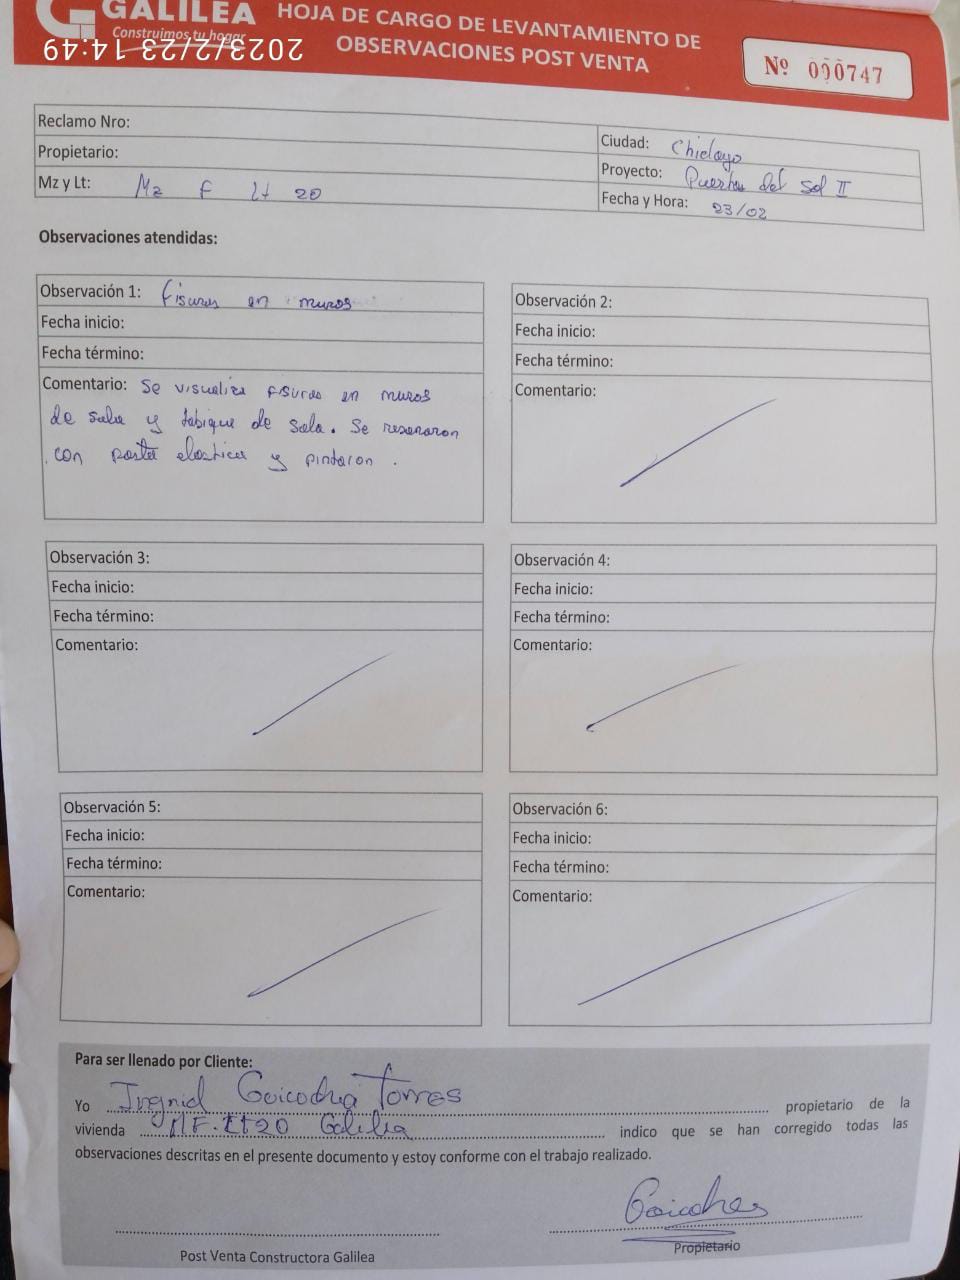 GALILEA
Construimos tu hogar
2023/2/23 14:49
HOJA DE CARGO DE LEVANTAMIENTO DE
OBSERVACIONES POST VENTA
Nº 000747
Reclamo Nro:
Propietario:
Mz y Lt: Mz F Lt 20
Ciudad: Chiclayo
Proyecto: Puertas del Sol II
Fecha y Hora: 23/02
Observaciones atendidas:
Observación 1: Fisuras en muros
Fecha inicio:
Fecha término:
Comentario: Se visualiza fisuras en muros
de sala y tabique de sala. Se resanaron
con pasta elastica y pintaron .
Observación 2:
Fecha inicio:
Fecha término:
Comentario:
Observación 3:
Fecha inicio:
Fecha término:
Comentario:
Observación 4:
Fecha inicio:
Fecha término:
Comentario:
Observación 5:
Fecha inicio:
Fecha término:
Comentario:
Observación 6:
Fecha inicio:
Fecha término:
Comentario:
Para ser llenado por Cliente:
Yo Ingrid Goicochea Torres propietario de la
vivienda MF. LT20 Galilea indico que se han corregido todas las
observaciones descritas en el presente documento y estoy conforme con el trabajo realizado.
Goicochea
Post Venta Constructora Galilea
Propietario